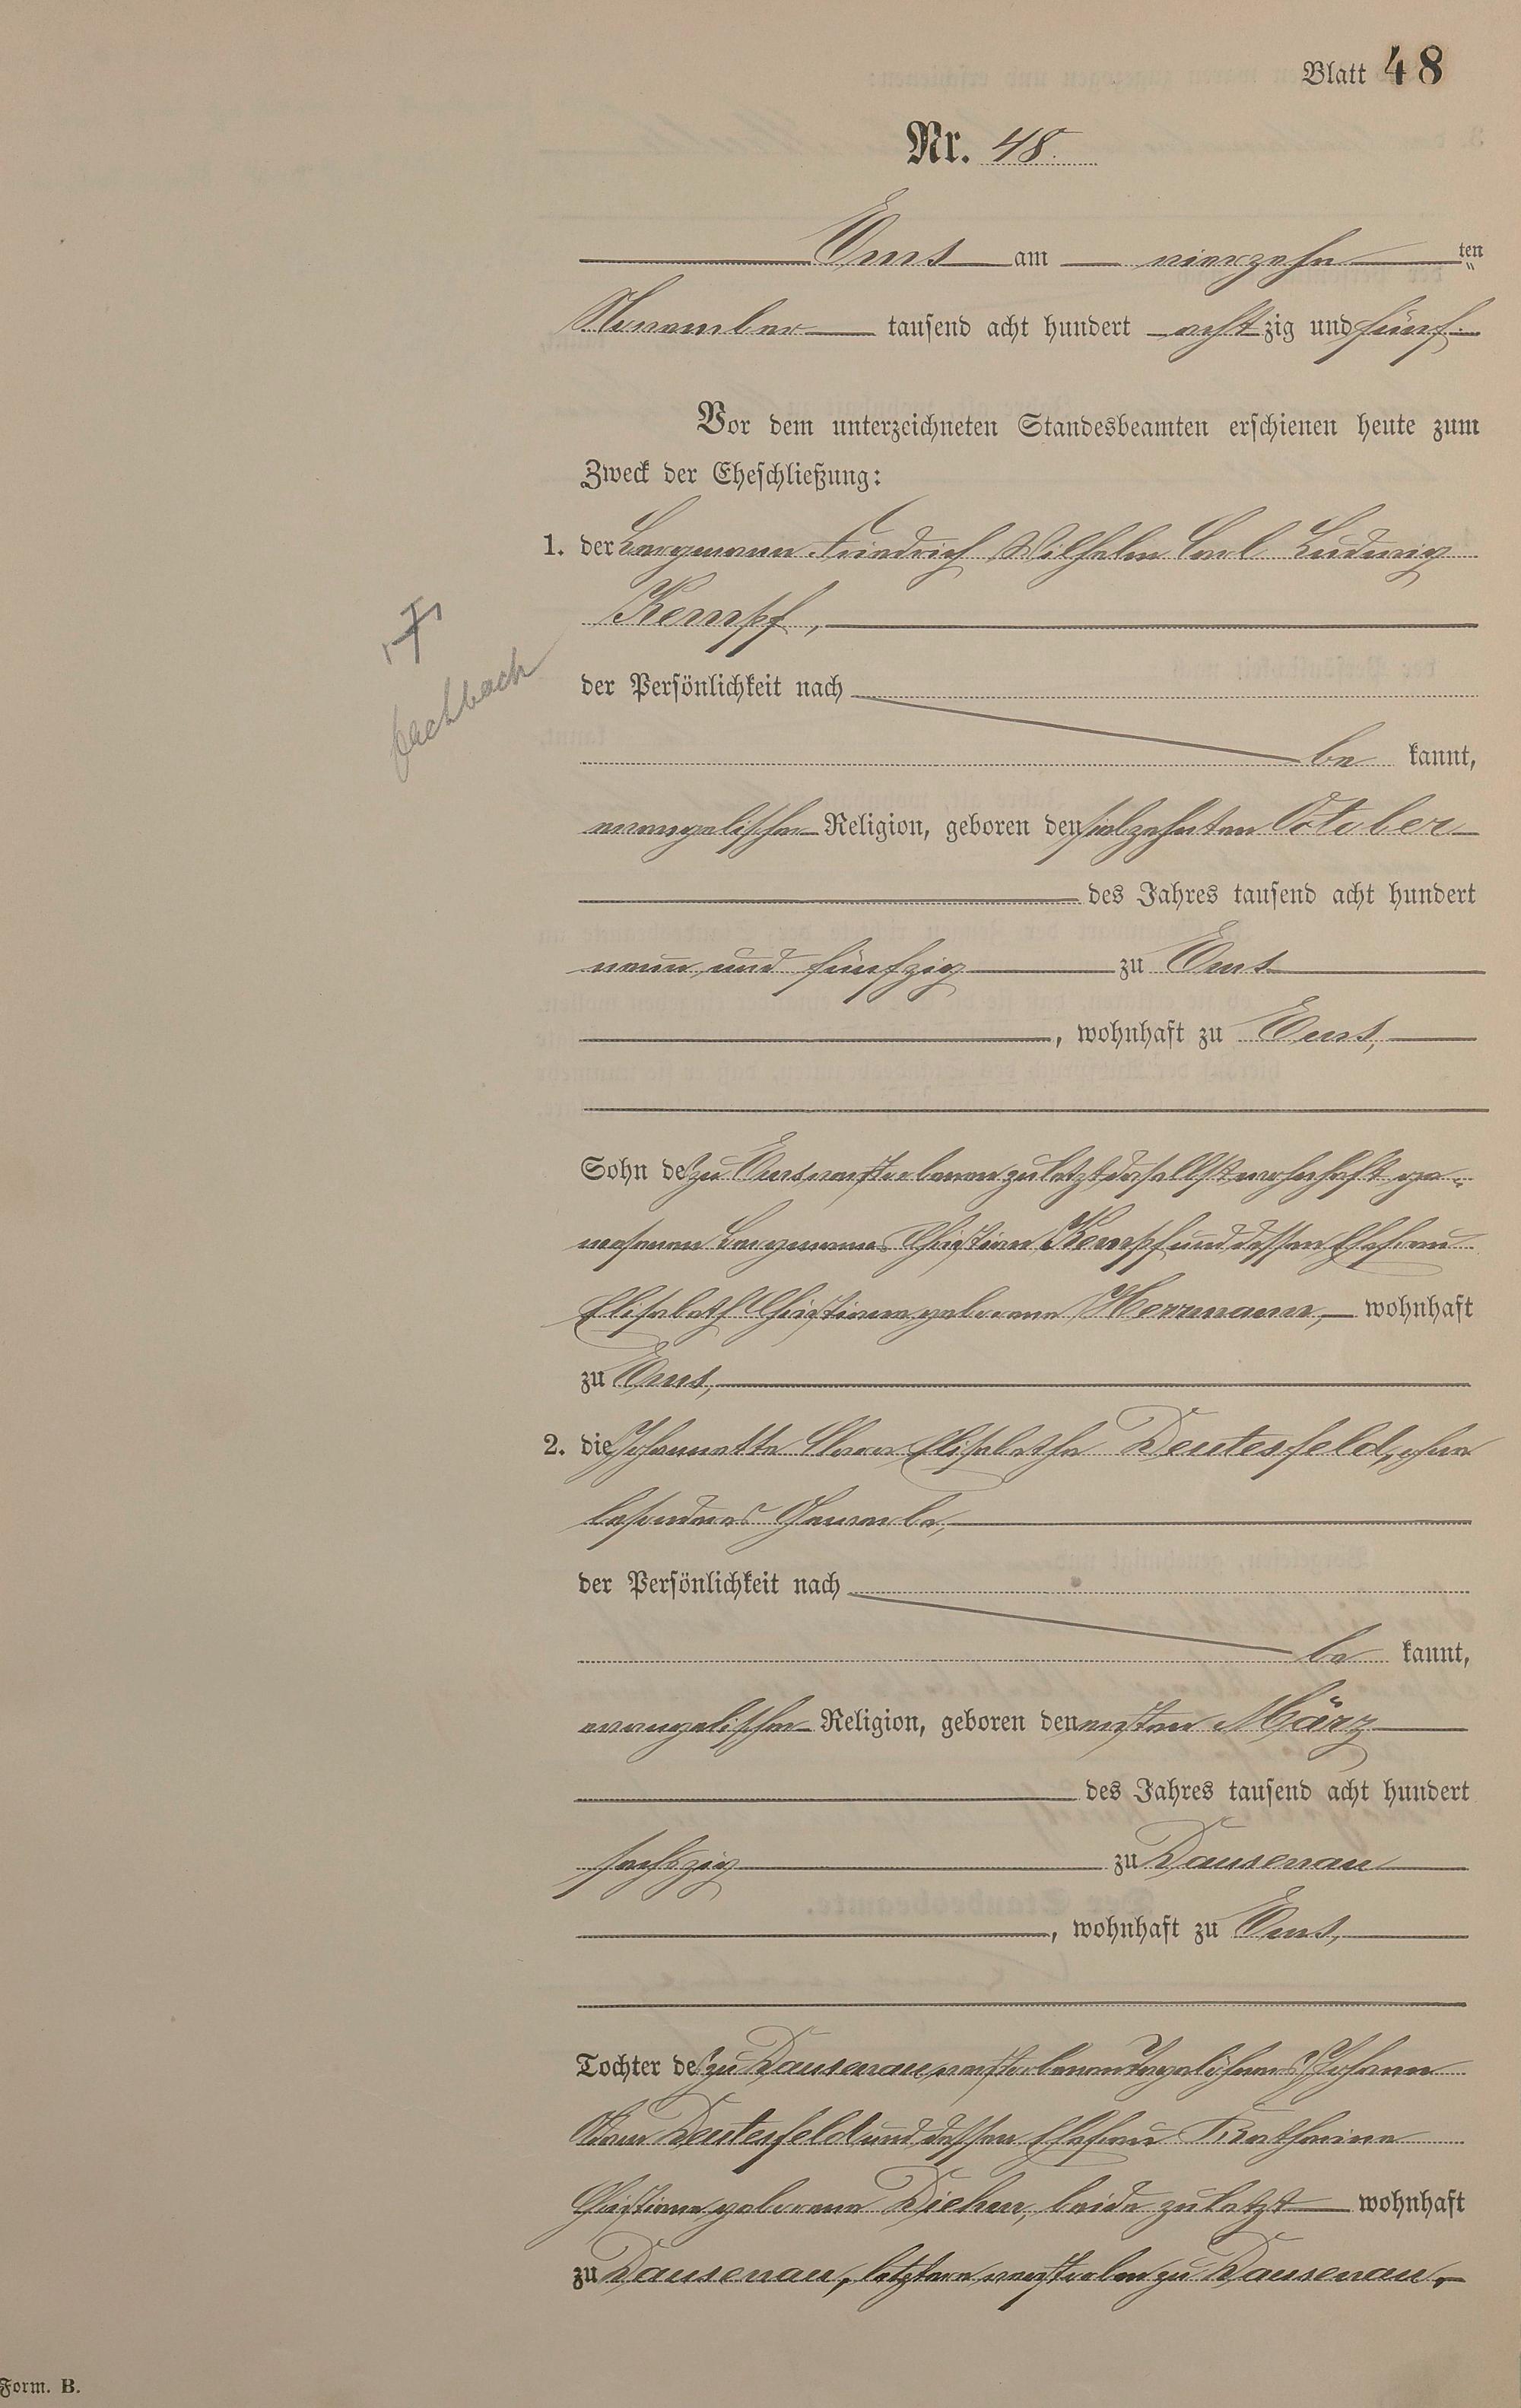 Blatt 48
Nr. 48.
Ems am vierzehn ten
November tausend acht hundert acht zig und fünf.
Vor dem unterzeichneten Standesbeamten erschienen heute zum
Zweck der Eheschließung:
1. der Bergmann Friedrich Wilhelm Carl Ludwig
Kempf,
der Persönlichkeit nach
be kannt,
evangelischer Religion, geboren den siebzehnten October
des Jahres tausend acht hundert
neun und fünfzig zu Ems
, wohnhaft zu Ems,
Sohn des zu Ems verstorbenen zuletzt daselbst wohnhaft ge-
wesenen Bergmanns Christian Kempf und dessen Ehefrau
Elisabeth Christiane geborene Herrmann, wohnhaft
zu Ems,
2. die Johannette Elisabethe Deutesfeld, ohne
besonderes Gewerbe,
der Persönlichkeit nach
be kannt,
evangelischer Religion, geboren den ersten März
des Jahres tausend acht hundert
sechszig zu Dausenau
, wohnhaft zu Ems,
Tochter des zu Dausenau verstorbenen Tagelöhners Johann
Adam Deutesfeld und dessen Ehefrau Katharine
Christiane geborene Diehm, beide zuletzt wohnhaft
zu Dausenau, letztere verstorben zu Dausenau.
Fachbach
Form. B.